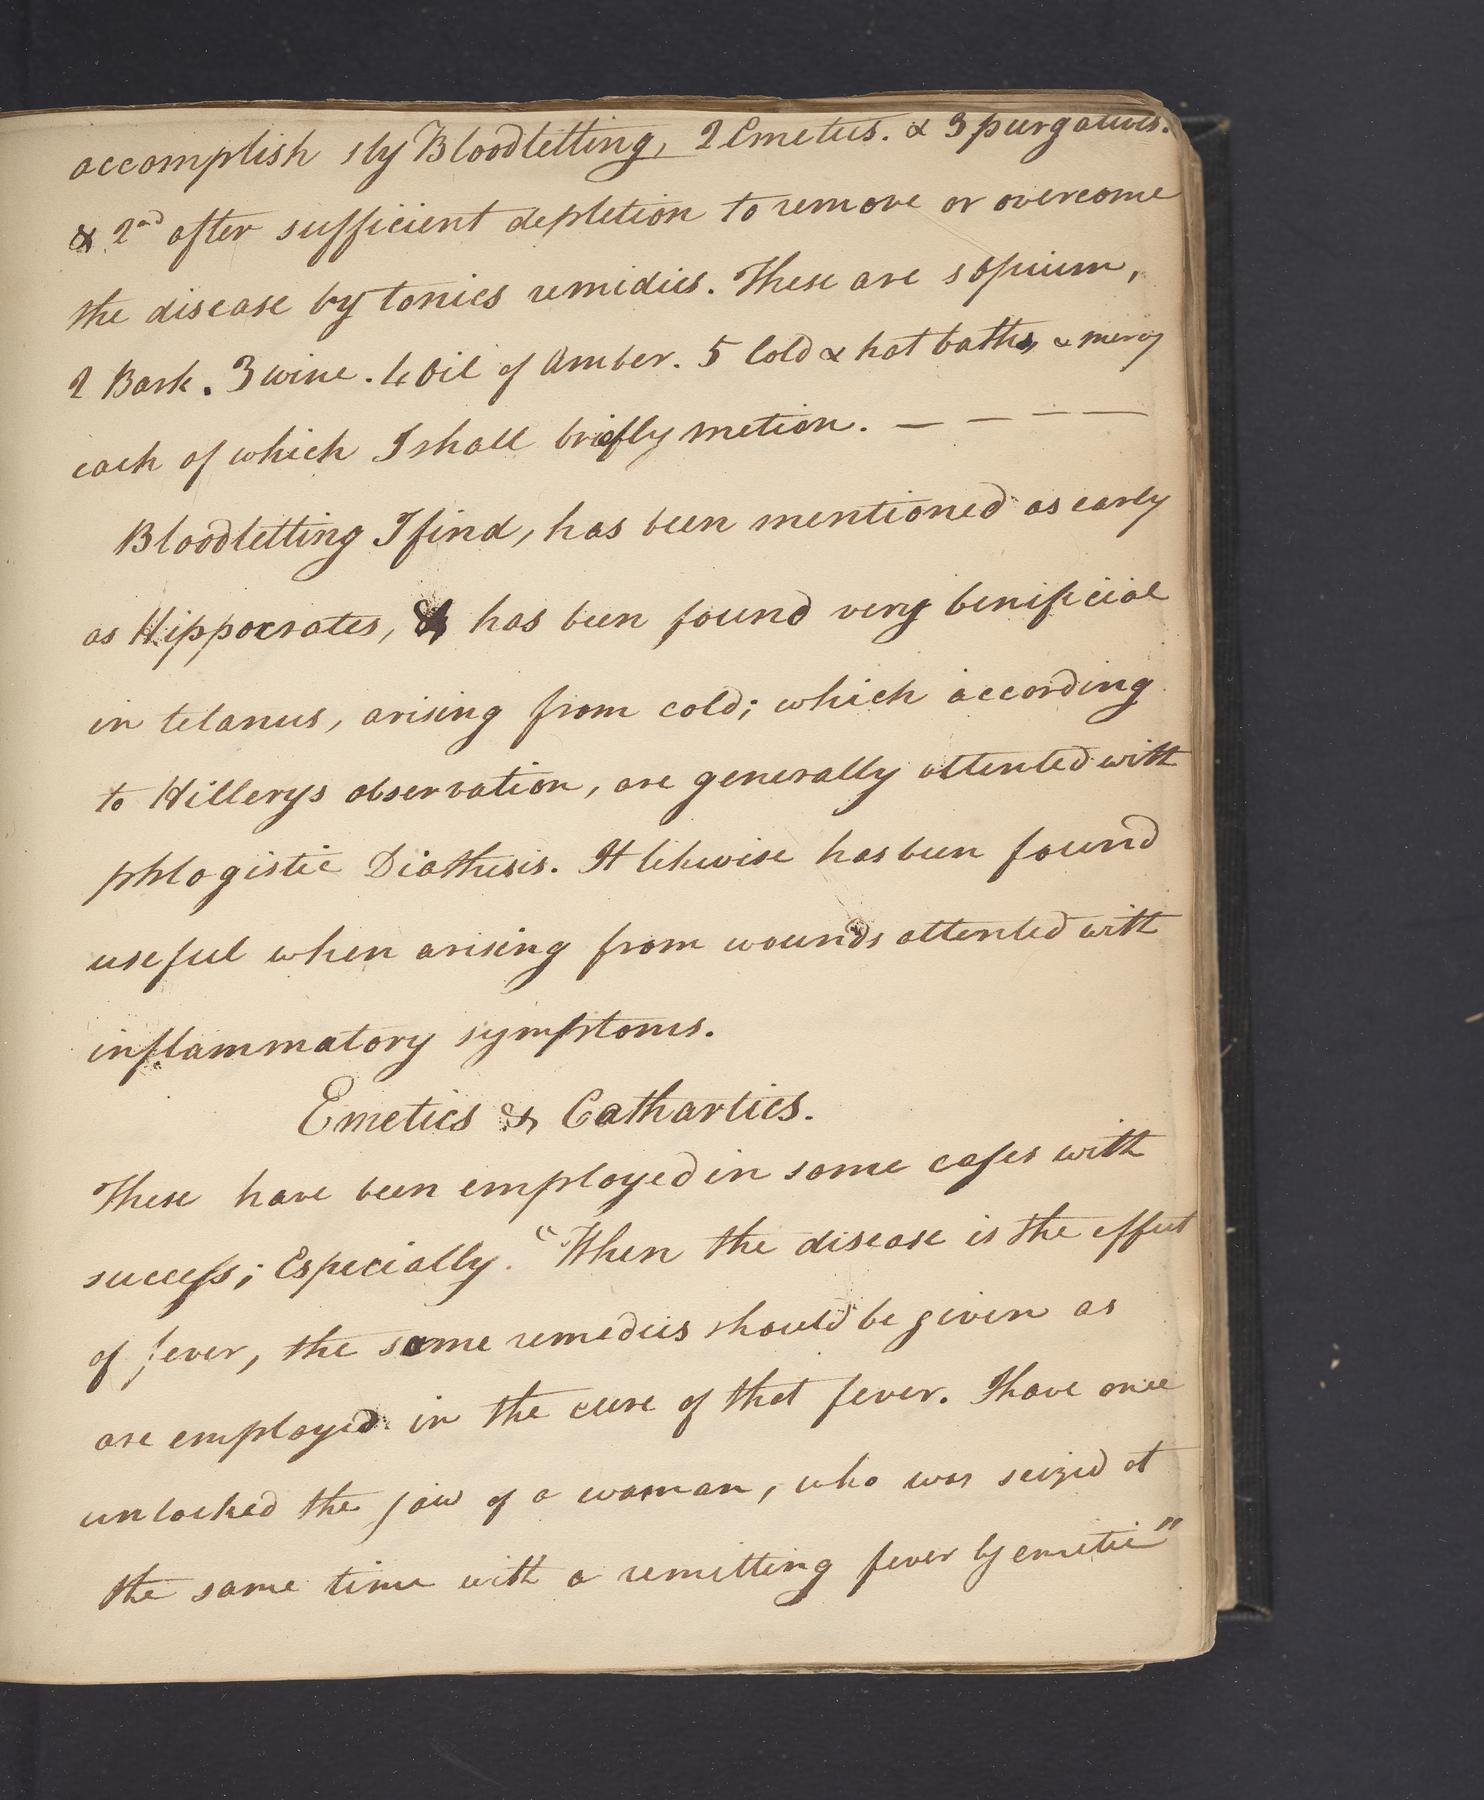 accomplish 1 by Bloodletting, 2 Emetics. & 3 purgatives.
& 2nd after sufficient depletion to remove or overcome
the disease by tonics remidies. These are 1 opium,
2 Bark. 3 wine. 4 Oil of Amber. 5 Cold & hot baths & mercy
each of which I shall briefly metion. — — — —
Bloodletting I find, has been mentioned as early
as Hippocrates, & has been found very benificial
in tetanus, arising from cold; which according
to Hillerys observation, are generally attented with
phlogistic Diathesis. It likewise has been found
useful when arising from wounds attented with
inflammatory symptoms.
Emetics & Cathartics.
These have been employed in some cases with
success; Especially. "When the disease is the effect
of fever, the same remedies should be given as
are employed in the cure of that fever. I have once
unlocked the jaw of a woman, who was seized at
the same time with a remitting fever by emetic"